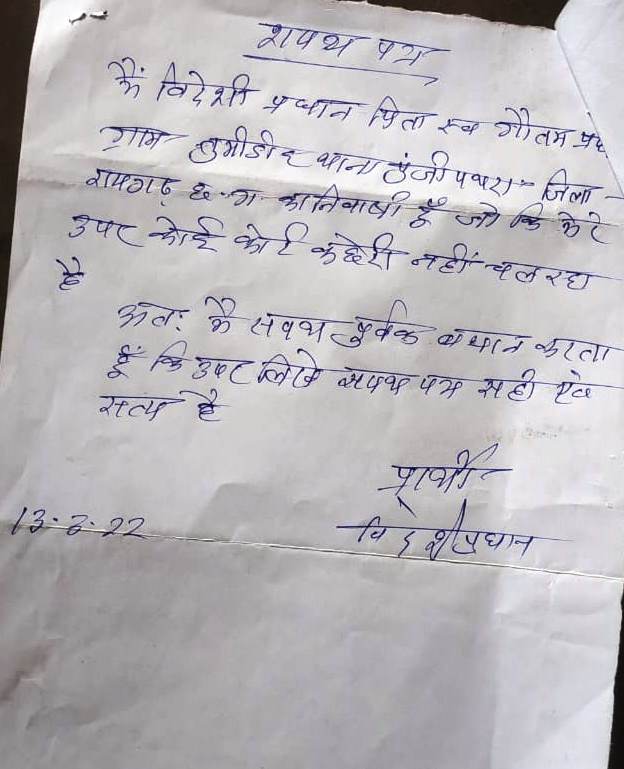 शपथ पत्र
मैं विदेशी प्रधान पिता स्व गौतम प्रध
ग्राम तुमीडीह थाना पुंजीपथरा जिला
रायगढ़ छ.ग. का निवाषी हूँ जो कि मेरे
उपर कोई कोर्ट कछेरी नहीं चल रहा
है
अतः मै सपथ पुर्वक बयान करता
हूँ कि उपर लिखे शपथ पत्र सही एंव
सत्य है
प्रार्थी
विदेशी प्रधान
13.2.22